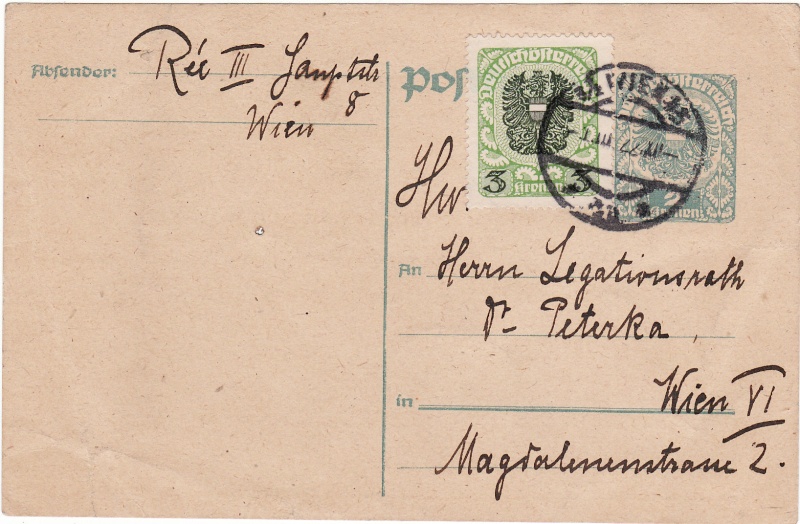 Absender: Rée III Hauptstr
8
Wien
Pos
Deutschösterrei
3 Kronen 3
WIEN
III 22 XII
2
Hw.
An Herrn Legationsrath
Dr Peterka,
in Wien VI
Magdalenenstrasse 2.